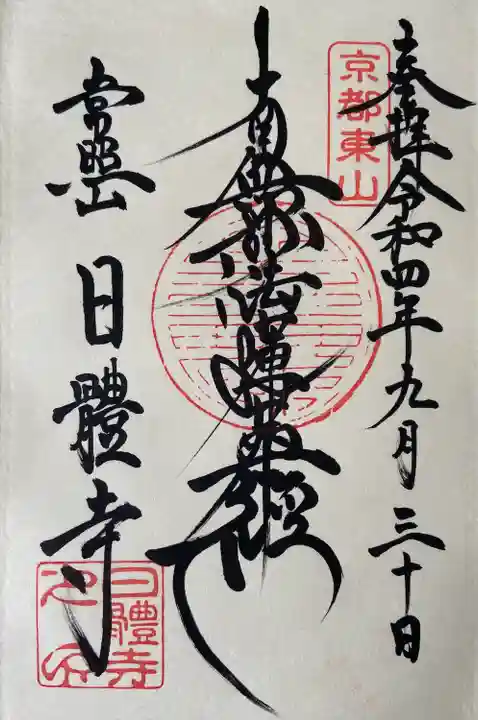 奉拝令和四年九月三十日
京都東山
南無妙法蓮華経
常照山
日體寺
日體寺
之印